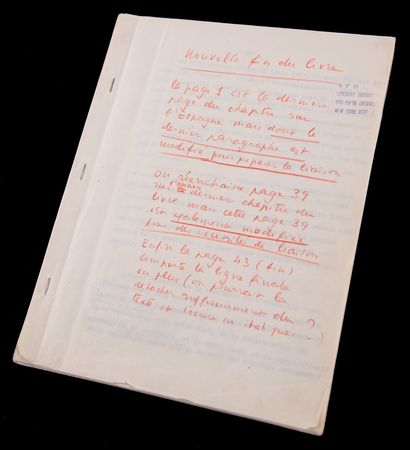 Nouvelle fin du livre
A F O
LITERARY AGENCY
545 FIFTH AVENUE
NEW YORK CITY
la page 1 est la dernière
page du chapitre sur
l'Espagne mais dont le
dernier paragraphe est
modifié pour préparer la liaison
on réenchaîne page 39
sur l'ancien dernier chapitre du
livre mais cette page 39
est également modifiée
pour des nécessités de liaison
Enfin la page 43 (fin)
comporte la ligne finale
en plus (on pourrait la
détacher suffisamment du
texte et l'écrire en italiques -)